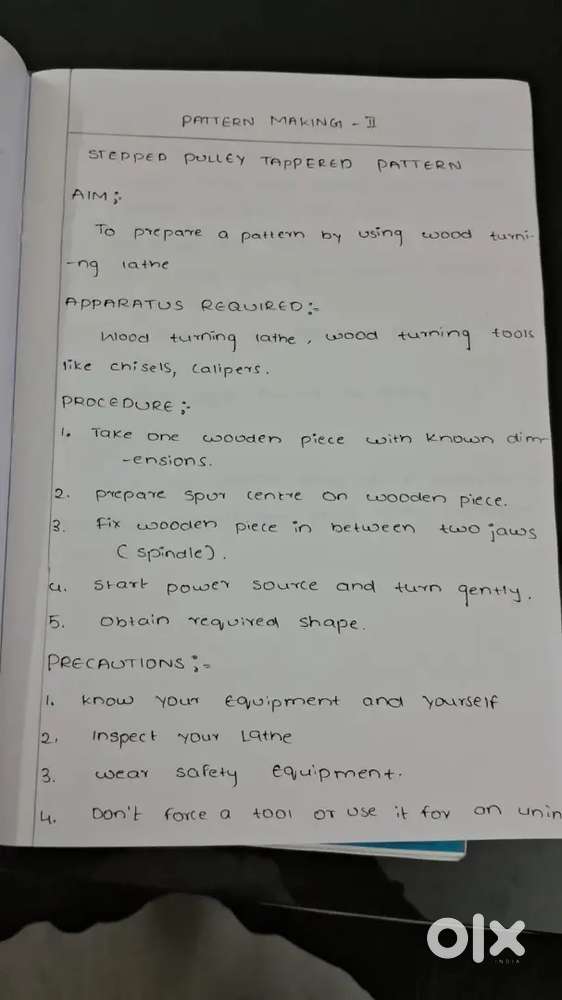 PATTERN MAKING - II
STEPPED PULLEY TAPPERED PATTERN
AIM :-
To prepare a pattern by using wood turni-
-ng lathe
APPARATUS REQUIRED :-
Wood turning lathe, wood turning tools
like chisels, calipers.
PROCEDURE :-
1. Take one wooden piece with known dim-
-ensions.
2. prepare spur centre on wooden piece.
3. fix wooden piece in between two jaws
(spindle).
4. start power source and turn gently.
5. obtain required shape.
PRECAUTIONS :-
1. know your equipment and yourself
2. Inspect your Lathe
3. wear safety equipment.
4. Don't force a tool or use it for an unin
olx
INDIA